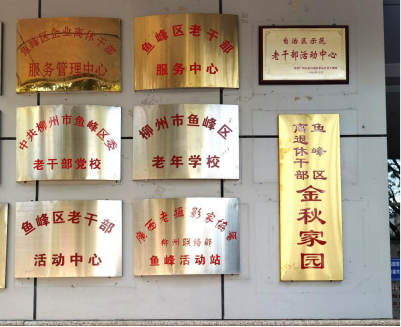 鱼峰区企业离休干部
服务管理中心
鱼峰区老干部
服务中心
自治区示范
老干部活动中心
中共柳州市鱼峰区委
老干部党校
柳州市鱼峰区
老年学校
鱼峰区
离退休干部
金秋家园
鱼峰区老干部
活动中心
广西老摄影家协会
柳州联络部
鱼峰活动站